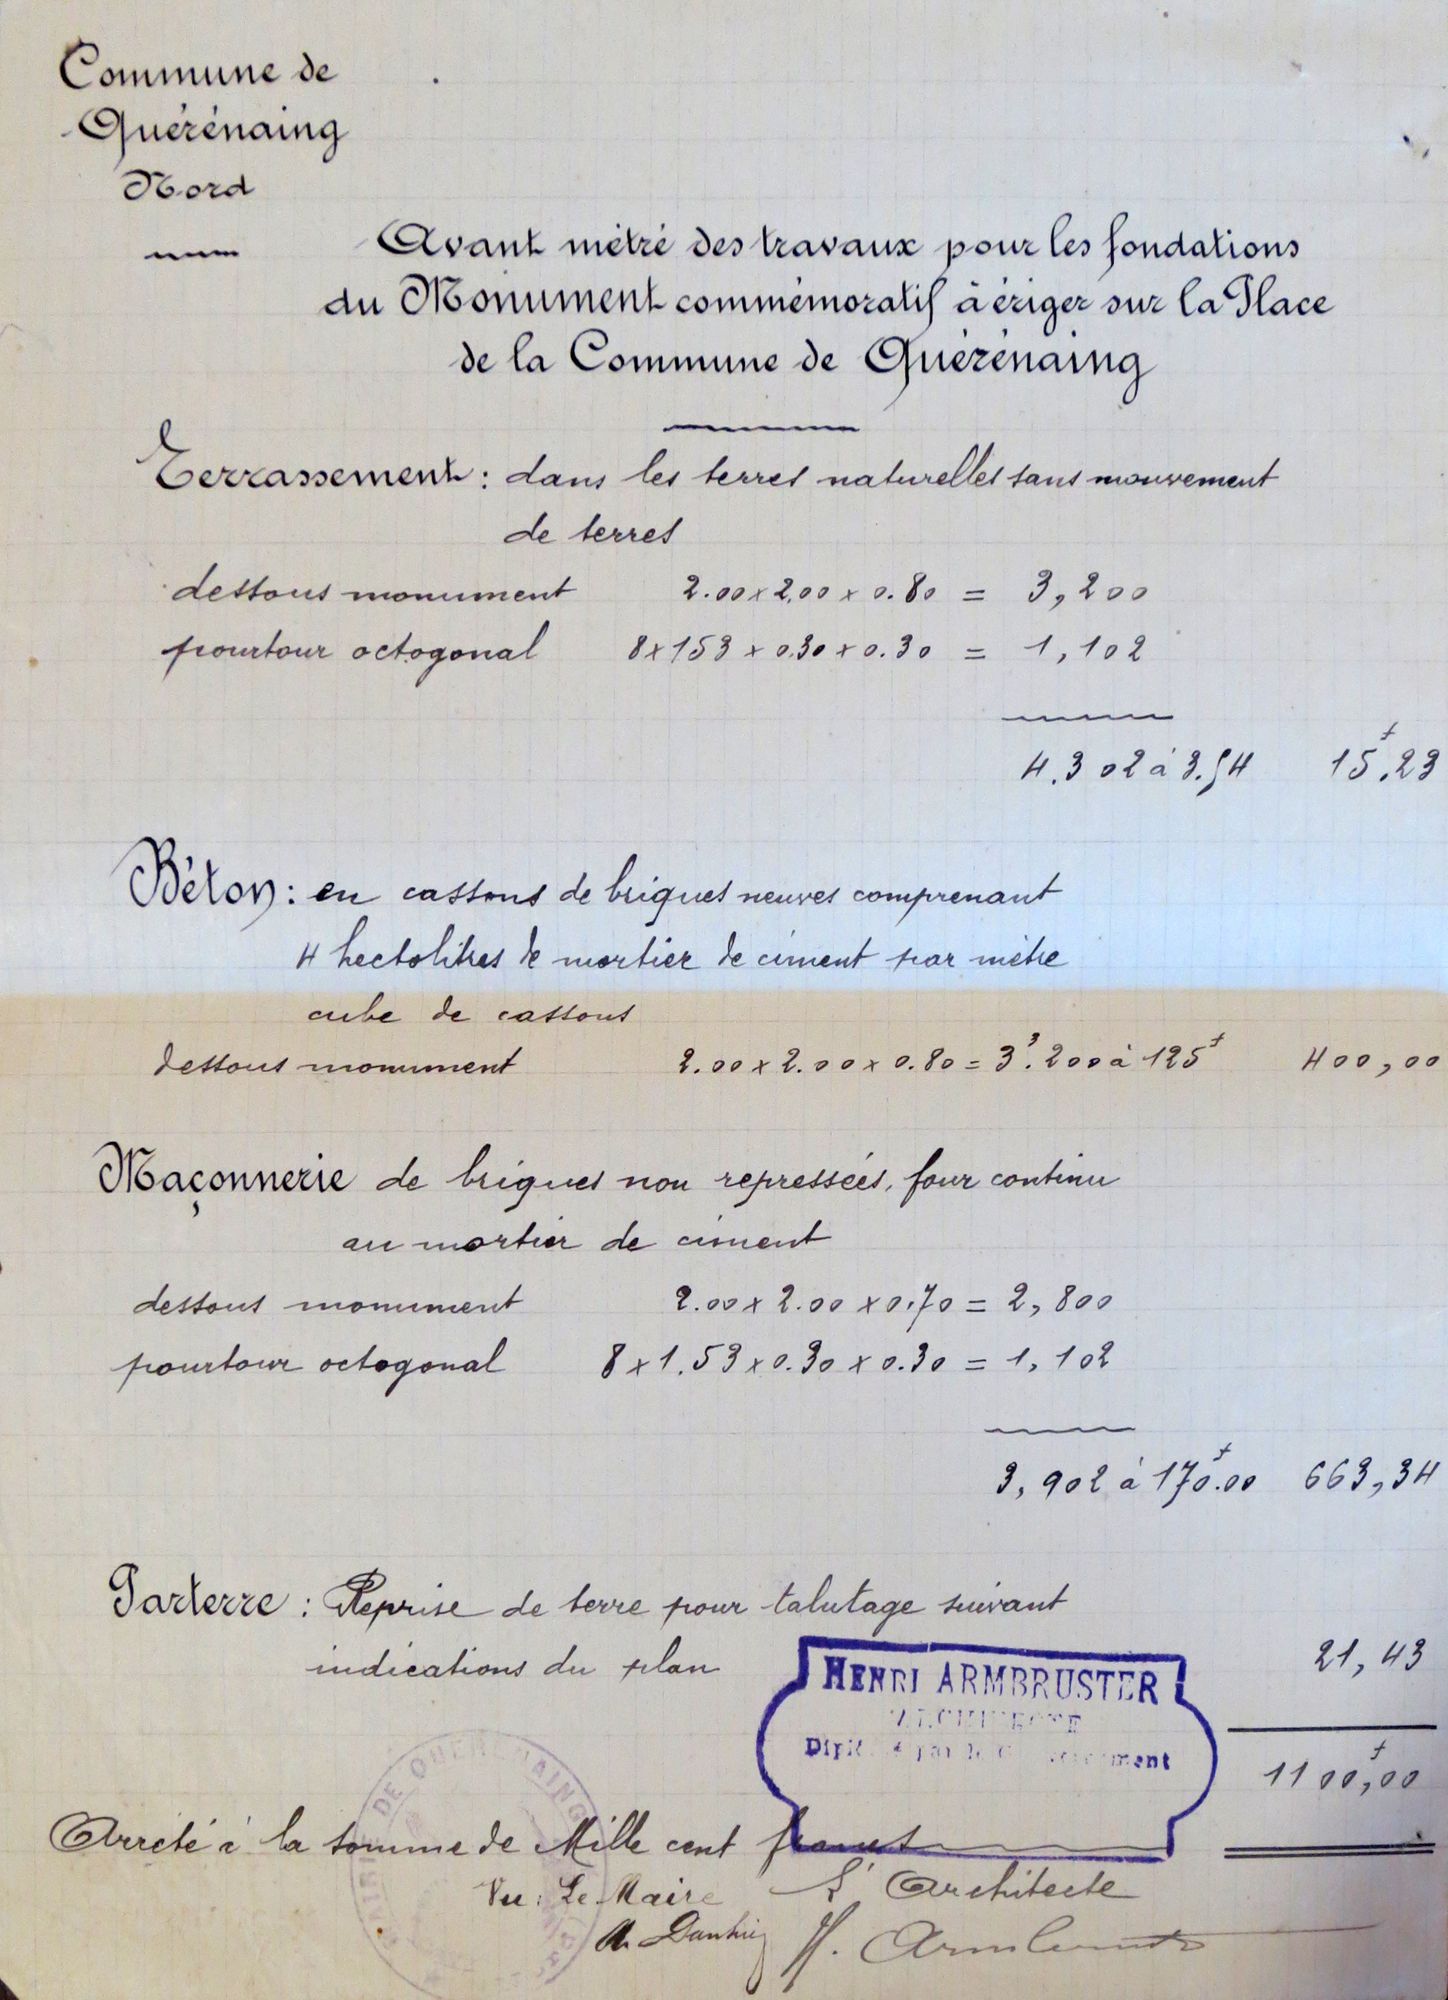 Commune de
Quérénaing
Nord
Avant métré des travaux pour les fondations
du Monument commémoratif à ériger sur la Place
de la Commune de Quérénaing
Terrassement : dans les terres naturelles sans mouvement
de terres
dessous monument 2.00 x 2.00 x 0.80 = 3,200
pourtour octogonal 8 x 153 x 0.30 x 0.30 = 1,102
4.302 à 3.54 15f.23
Béton : en cassons de briques neuves comprenant
4 hectolitres de mortier de ciment par mètre
cube de cassons
dessous monument 2.00 x 2.00 x 0.80 = 3³.200 à 125f 400,00
Maçonnerie de briques non repressées, four continu
au mortier de ciment
dessous monument 2.00 x 2.00 x 0.70 = 2,800
pourtour octogonal 8 x 1.53 x 0.30 x 0.30 = 1,102
3,902 à 170f.00 663,34
Parterre : Reprise de terre pour talutage suivant
indications du plan 21,43
HENRI ARMBRUSTER
ARCHITECTE
1100f,00
Arrêté à la somme de Mille cent francs
Vu : Le Maire L'Architecte
H. Armbruster